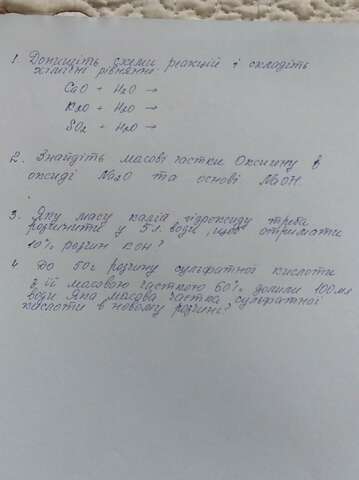 1. Допишіть схеми реакцій і складіть
хімічні рівняння
CaO + H2O →
K2O + H2O →
SO2 + H2O →
2. Знайдіть масові частки Оксигену в
оксиді Na2O та основі NaOH.
3. Яку масу калій гідроксиду треба
розчинити у 5л. води, щоб отримати
10% розчин KOH?
4. До 50г розчину сульфатної кислоти
з її масовою часткою 60% долили 100мл
води Яка масова частка сульфатної
кислоти в новому розчині?